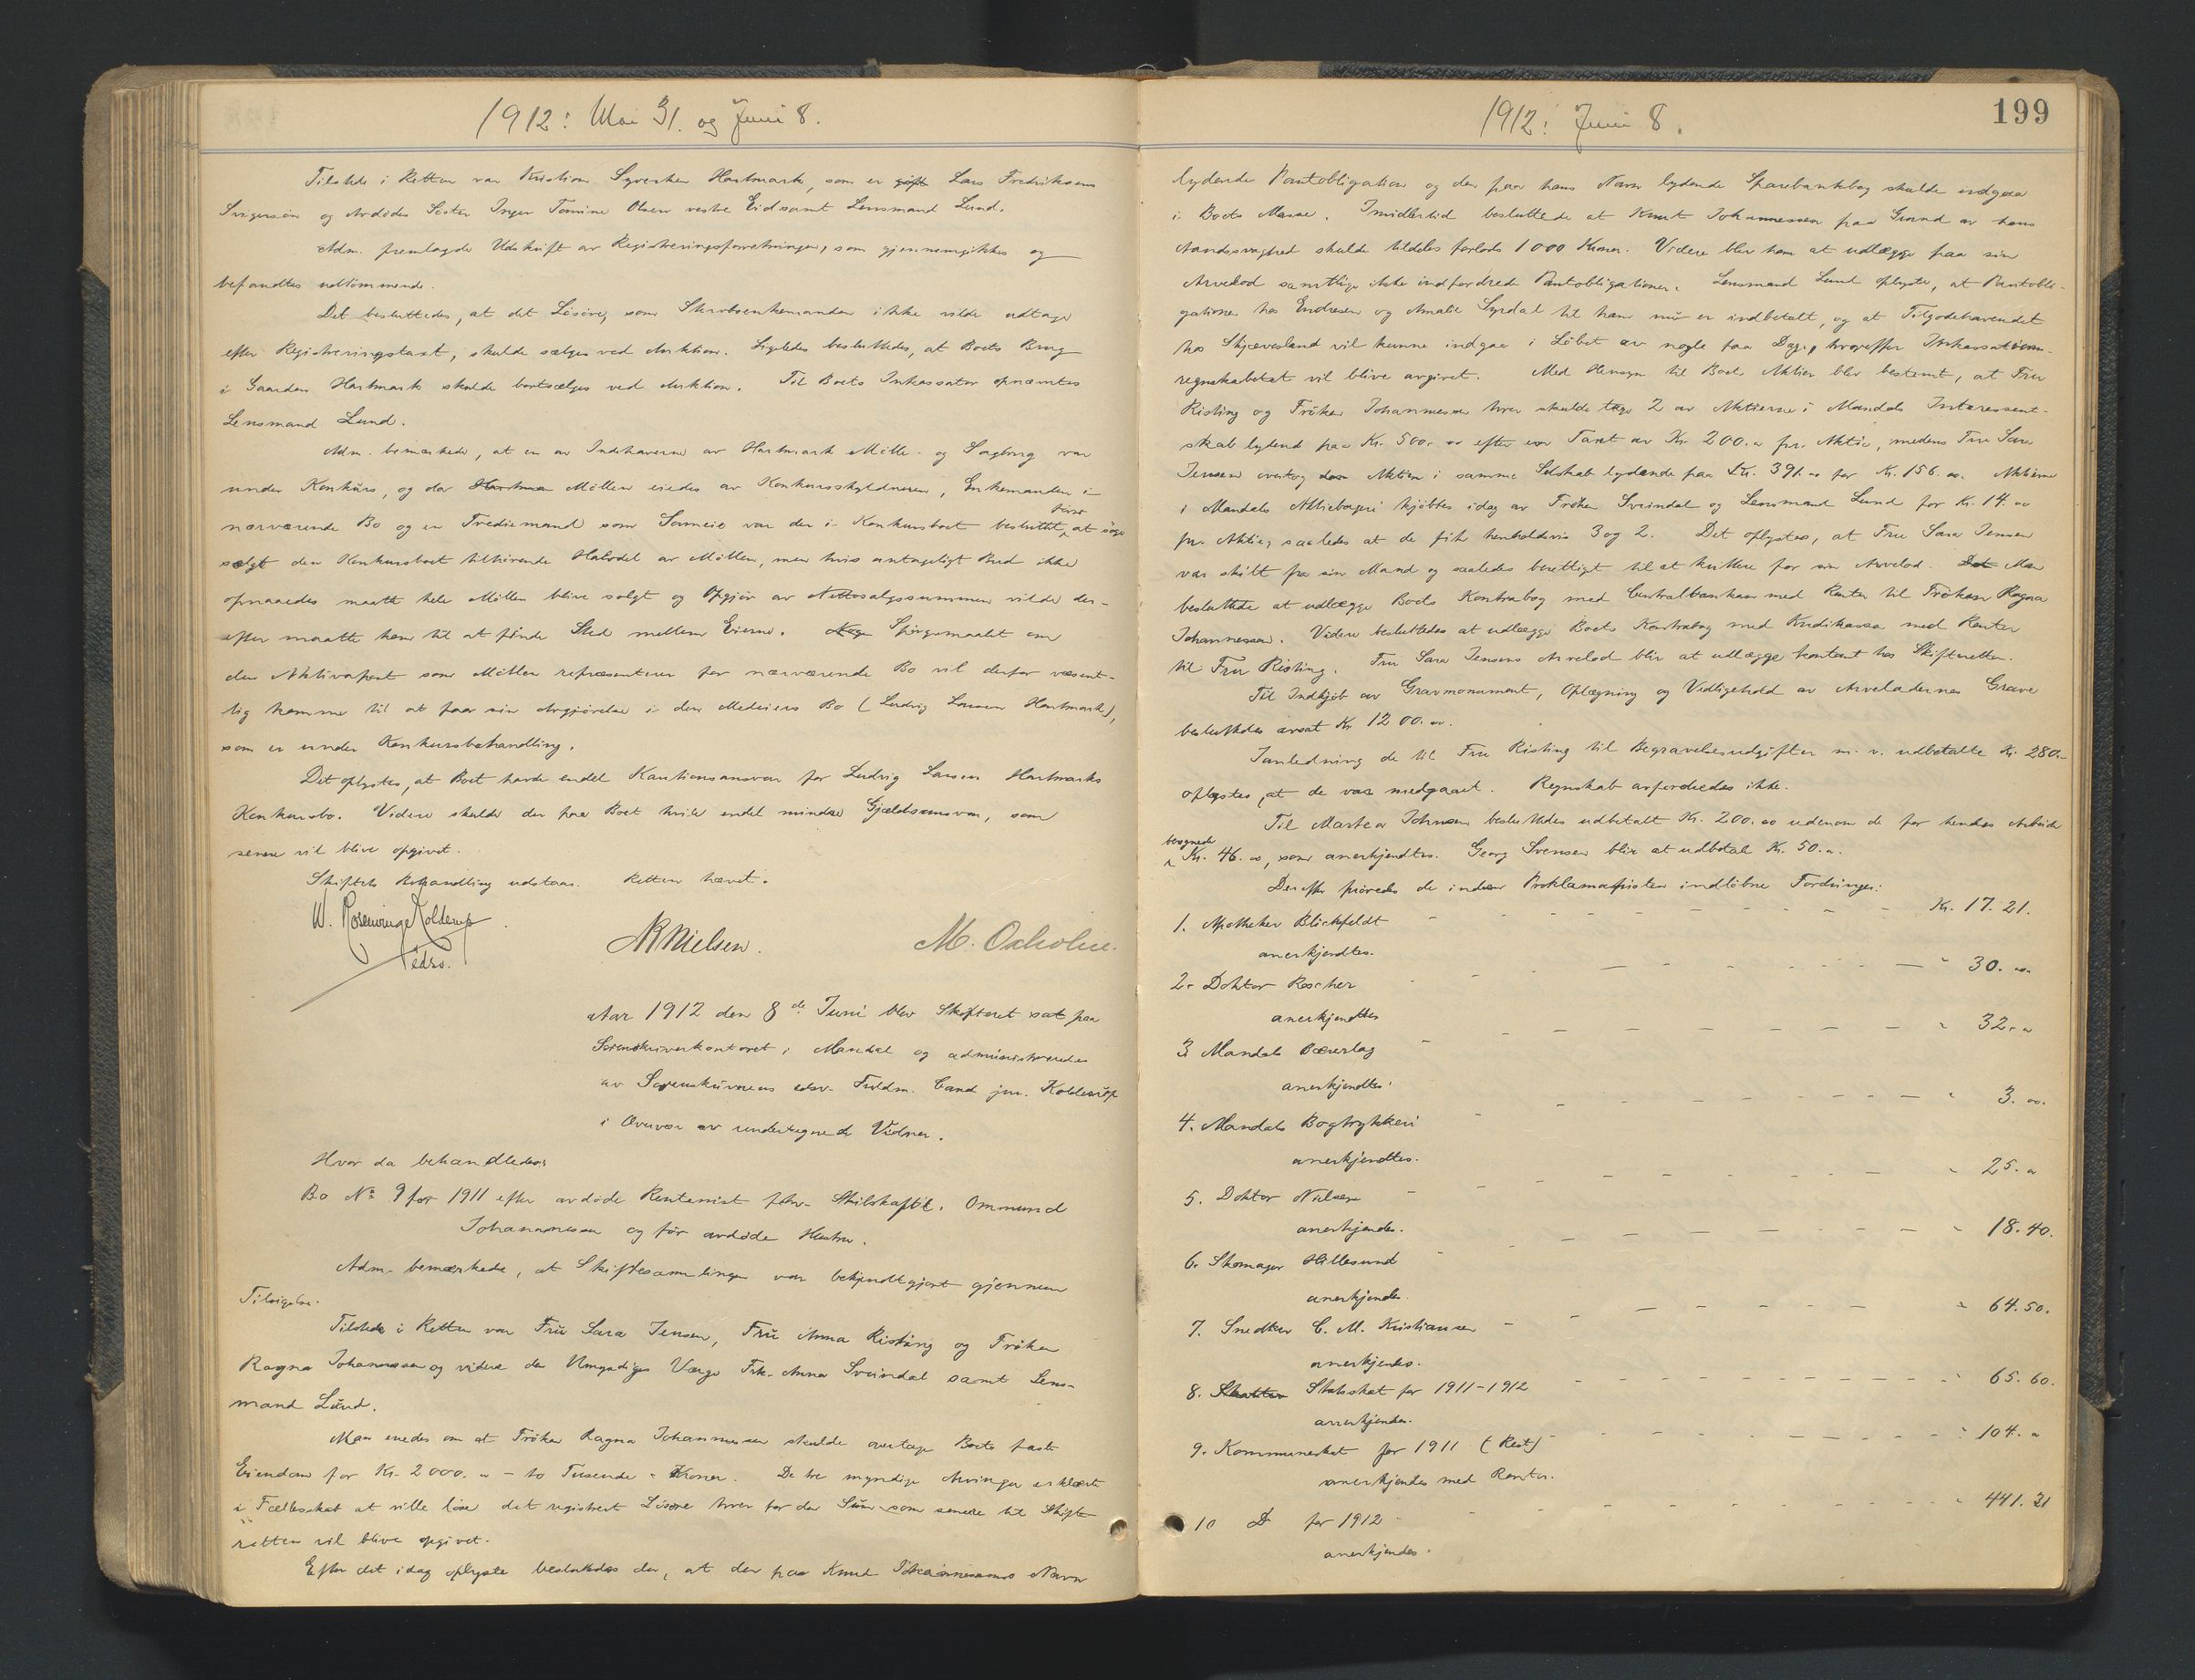 1912: Mai 31. og Juni 8.
Tilstede i Retten var Kristian Syvertsen Hartmark, som er gift Lars Fredriksens
Svigersøn og Avdødes Søster Inger Tomine Olsen vestre Eid samt Lensmand Lund.
Adm. fremlagde Udskrift av Registreringsforretningen, som gjennemgikkes og
befandtes udtømmende.
Det besluttedes, at det Løsøre, som Skrøboenkemanden ikke vilde udtage
efter Registreringstaxt, skulde sælges ved Auktion. Ligeledes besluttedes, at Boets Brug
i Gaarden Hartmark skulde bortsælges ved Auktion. Til Boets Inkassator opnævntes
Lensmand Lund.
Adm. bemærkede, at en av Indehaverne av Hartmark Mølle- og Sagbrug var
under Konkurs, og da Møllen eiedes av Konkursskyldneren, Enkemanden i
nærværende Bo og en Trediemand som Sameie var der i Konkursboet besluttet først at søge
sælgt den Konkursboet tilhørende Halvdel av Møllen, men hvis antageligt Bud ikke
opnaaedes maatte hele Møllen blive solgt og Opgjør av Nettosalgssummen vilde der-
efter maatte komme til at finde Sted mellem Eierne. Spørgsmaalet om
den Aktivapost som Møllen repræsenterer for nærværende Bo vil derfor væsent-
lig komme til at faa sin Avgjørelse i den Medeiers Bo (Ludvig Larsen Hartmark),
som er under Konkursbehandling.
Det oplystes, at Boet havde endel Kautionsansvar for Ludvig Larsen Hartmarks
Konkursbo. Videre skulde der paa Boet hvile endel mindre Gjældsansvar, som
senere vil blive opgivet.
Skiftets Behandling udstaar. Retten hævet.
W. Rosenvinge Kolderup
edsv.
N B Nielsen.
M. Oxholm.
Aar 1912 den 8de Juni blev Skifteret sat paa
Sorenskriverkontoret i Mandal og administreredes
av Sorenskriverens edsv. Fuldm. Cand jur. Kolderup
i Overvær av undertegnede Vidner.
Hvor da behandledes:
Bo No 9 for 1911 efter avdøde Rentenist fhv. Skibskapt. Ommund
Johannessen og før avdøde Hustru.
Adm. bemærkede, at Skiftesamlingen var bekjendtgjort gjennem
Tilsigelse.
Tilstede i Retten var Fru Sara Jensen, Fru Anna Risting og Frøken
Ragna Johannessen og videre den Umyndiges Værge Frk. Anna Svindal samt Lens-
mand Lund.
Man enedes om at Frøken Ragna Johannessen skulde overtage Boets faste
Eiendom for Kr. 2000.00 - to Tusende - Kroner. De tre myndige Arvinger erklærte
i Fællesskab at ville løse det registrert Løsøre hver for den Sum som senere til Skifte-
retten vil blive opgivet.
Efter det idag oplyste besluttedes der, at den paa Knut Johannessens Navn
1912: Juni 8.
199
lydende Pantobligation og den paa hans Navn lydende Sparebankbog skulde indgaa
i Boets Masse. Imidlertid besluttede at Knut Johannessen paa Grund av hans
Aandssvaghed skulde tildeles forlods 1000 Kroner. Videre blev ham at udlægge paa sin
Arvelod samtlige ikke indfordrede Pantobligationer. Lensmand Lund oplyste, at Pantobli-
gationer hos Endresen og Amalie Syrdal til ham nu er indbetalt, og at Tilgodehavendet
hos Skjævesland vil kunne indgaa i Løbet av nogle faa Dage, hvorefter Inkassations-
regnskabet vil blive avgivet. Med Hensyn til Boets Aktier blev bestemt, at Fru
Risting og Frøken Johannessen hver skulde tage 2 av Aktierne i Mandals Interessent-
skab lydend paa Kr. 500.00 efter en Taxt av Kr. 200.00 pr. Aktie, medens Fru Sara
Jensen overtog Aktien i samme Selskab lydende paa Kr. 391.00 for Kr. 156.00. Aktierne
i Mandals Aktiebageri kjøbtes idag av Frøken Svindal og Lensmand Lund for Kr. 14.00
pr. Aktie, saaledes at de fik henholdsvis 3 og 2. Det oplystes, at Fru Sara Jensen
var skilt fra sin Mand og saaledes berettiget til at kvittere for sin Arvelod. Man
besluttede at udlægge Boets Kontrabog med Centralbanken med Renter til Frøken Ragna
Johannessen. Videre besluttedes at udlægge Boets Kontrabog med Kreditkassa med Renter
til Fru Risting. Fru Sara Jensens Arvelod blir at udlægge kontant hos Skifteretten.
Til Indkjøb av Gravmonument, Oplægning og Vedligehold av Arveladernes Grave
besluttedes avsat Kr 1200.00.
I anledning de til Fru Risting til Begravelsesudgifter m. v. udbetalte Kr. 280.-
oplystes, at de var medgaaet. Regnskab avfordredes ikke.
Til Martea Johnsen besluttedes udbetalt Kr. 200.00 udenom de for hendes Arbeide
beregnede Kr. 46.00, som anerkjendtes. Georg Svensen blir at udbetale Kr. 50.00.
Derefter prøvedes de inden Proklamafristen indløbne Fordringer:
1. Apotheker Blickfeldt - - - Kr. 17.21.
anerkjendtes.
2. Doktor Roscher - - - " 30.00.
anerkjendtes
3. Mandals Bærerlag - - - " 32.00
anerkjendtes.
4. Mandals Bogtrykkeri - - - " 3.00.
anerkjendtes.
5. Doktor Nielsen - - - " 25.00
anerkjendes.
6. Skomager Hillesund - - - " 18.40.
anerkjendes.
7. Snedker C. M. Kristiansen - - - " 64.50.
anerkjendes.
8. Statsskat for 1911-1912 - - - " 65.60.
anerkjendes.
9. Kommuneskat for 1911 (Rest) - - - " 104.00
anerkjendes med Renter.
10 Do for 1912 - - - " 441.21
anerkjendes.